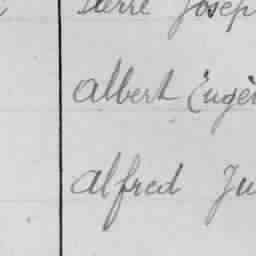 Pierre Josep
Albert Eugè
Alfred Ju